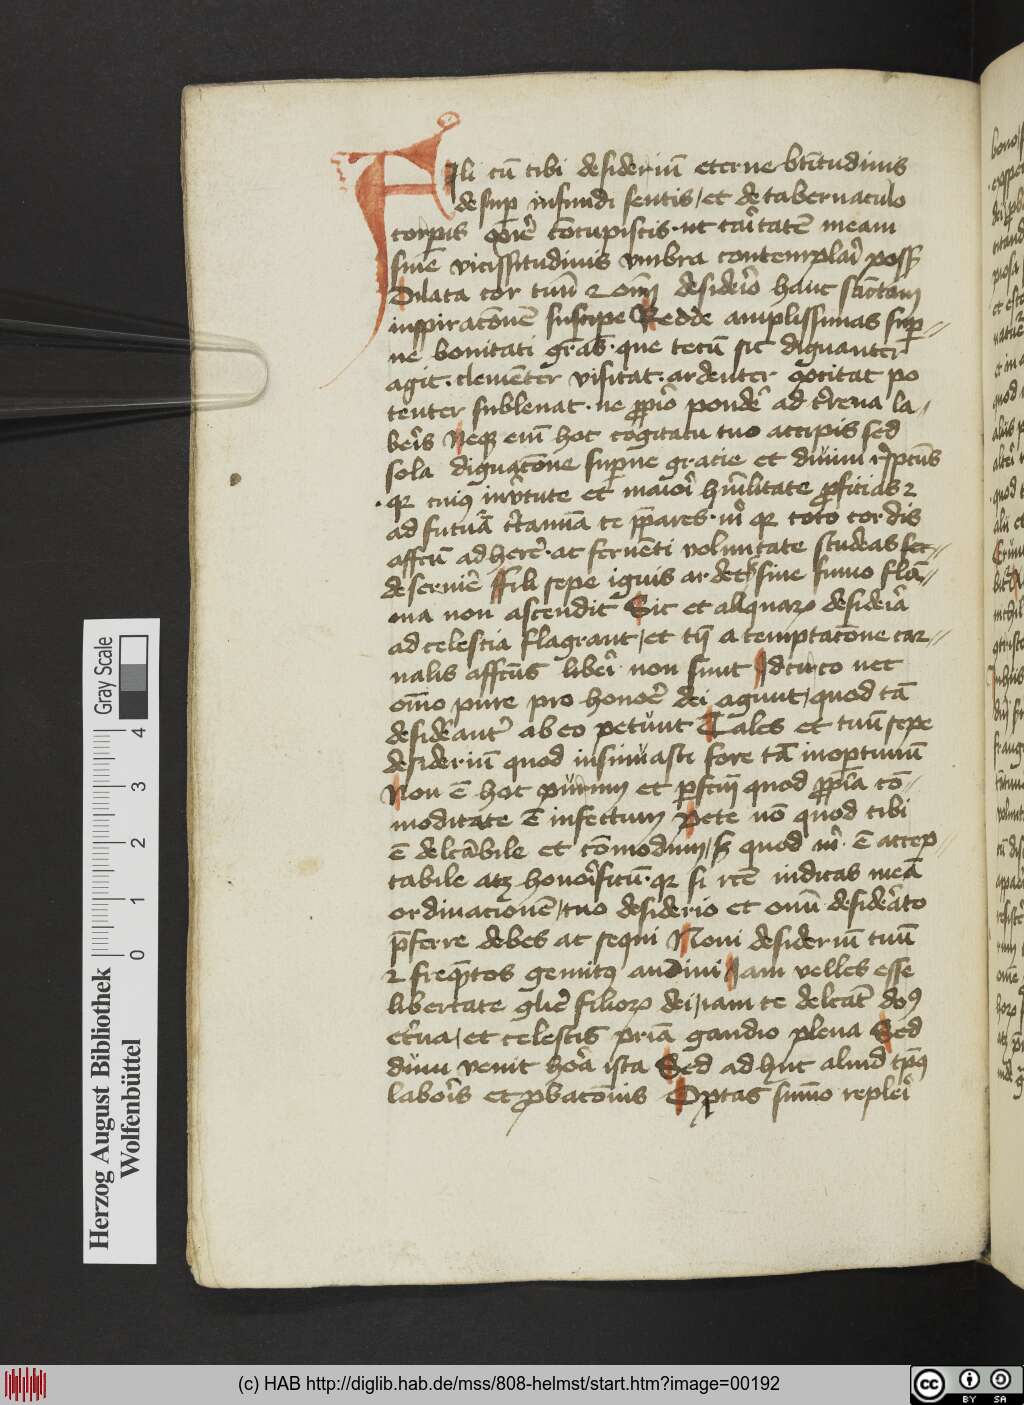 Fili cū tibi desideriū eterne btītudinis
desup infundi sentis / et de tabernaculo
corpis exire cōcupiscis · ut caritatē meam
sine vicissitudinis vmbra contemplari possis
Dilata cor tuū et omi desiderio hanc sāctam
inspiracōnem suscipe Redde amplissimas sup//
ne bonitati gras · que tecū sic dignanter
agit · clementer visitat · ardenter excitat po
tenter sublenat · ne proprio pondere ad terrena la//
beris Neque enī hoc cogitatu tuo accipis sed
sola dignacōne supne gracie et diuini respectus
· quatenus in virtute et maiori humilitate proficias et
ad futura certamina te prepares · michi quoque toto cordis
affectu adherere · ac feruenti voluntate studeas
deseruire Fili sepe ignis ardet / sine fumo flā//
ma non ascendit Sic et aliquorum desideria
ad celestia flagrant / et tn̄ a temptacōne car//
nalis affectus liberi non sunt Idcirco nec
omnino pure pro honore dei agunt / quod tā
desideranter ab eo petunt Tale est et tuū sepe
desideriū quod insinuasti fore tā inoptunū
Non ē hoc purum et perfectum quod propria cō
moditate ē infectum Pete nō quod tibi
ē delectabile et cōmodum / sed quod michi ē accep//
tabile atque honorificū · quia si recte iudicas meā
ordinacionē / tuo desiderio et omi desiderato
preferre debes ac sequi Noui desideriū tuū
et frequentes gemitus audiui Iam velles esse
libertate glorie filiorum dei / iam te delectat domus
eterna / et celestis patria gaudio plena Sed
dum venit hora ista Sed adhuc aliud tempus
laboris et probacōnis Optas summo repleri
Herzog August Bibliothek
Wolfenbüttel
Gray Scale
0 1 2 3 4
(c) HAB http://diglib.hab.de/mss/808-helmst/start.htm?image=00192
cc BY SA